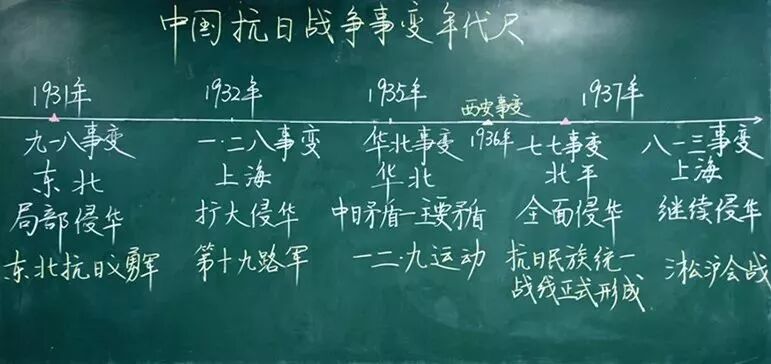 中国抗日战争事变年代尺
1931年 1932年 1935年 西安事变 1937年
九一八事变 一·二八事变 华北事变 1936年 七七事变 八一三事变
东北 上海 华北 北平 上海
局部侵华 扩大侵华 中日矛盾—主要矛盾 全面侵华 继续侵华
东北抗日义勇军 第十九路军 一二·九运动 抗日民族统一 淞沪会战
战线正式形成